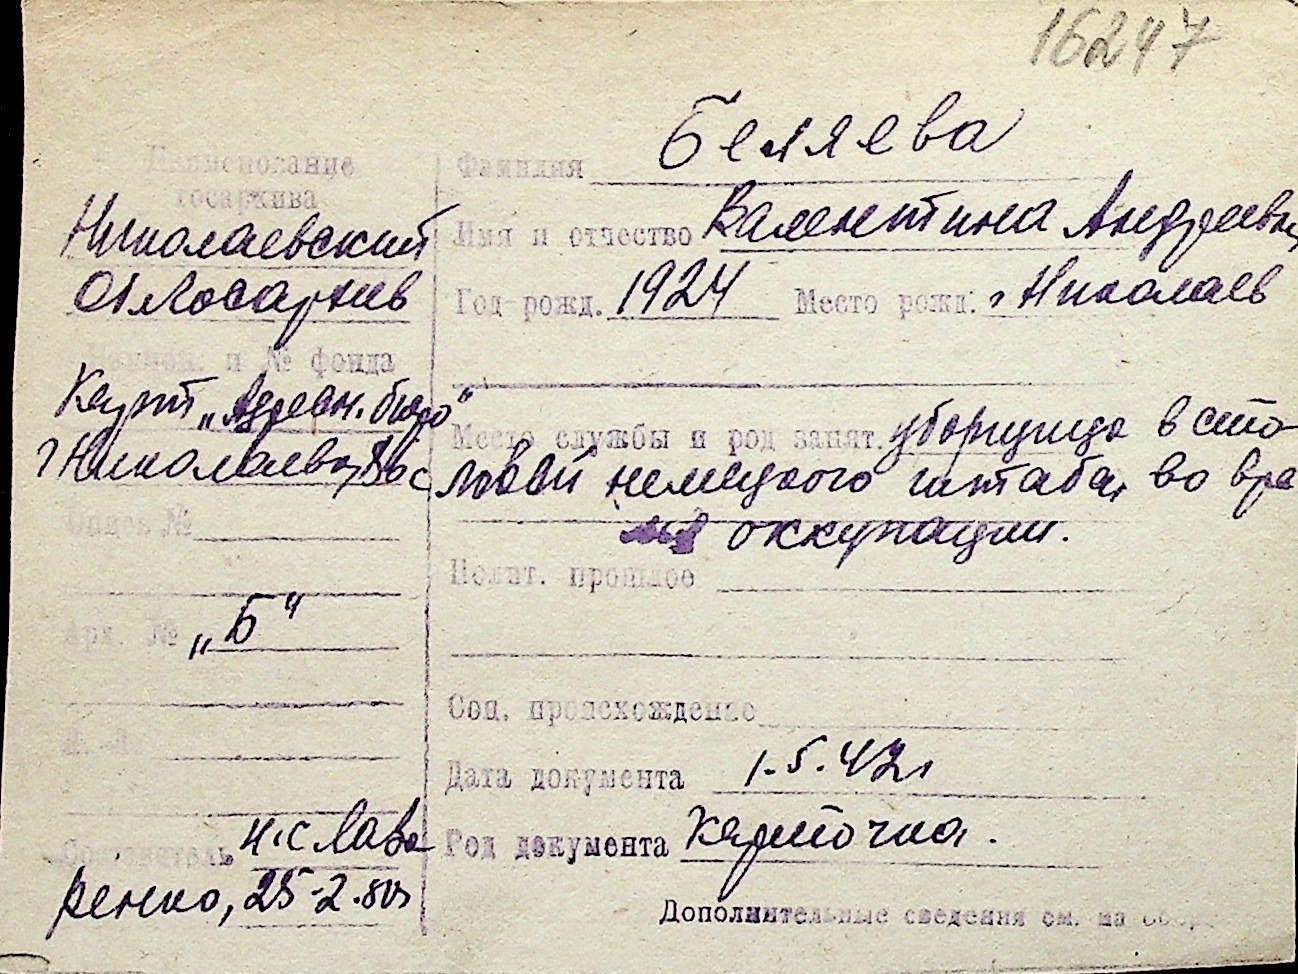 16247
Наименование
госархива
Николаевский
Облгосархив
Наимен. и № фонда
Карт „Адресн. бюро"
г Николаева,
Опись №
Арх. № „Б"
Составитель н.с Лавренко, 25-2.
Фамилия Беляева
Имя и отчество Валентина Андреевна
Год рожд. 1924 Место рожд. г Николаев
Место службы и род занят. уборщица в сто-
ловой немецкого штаба, во вре
мя оккупации.
Полит. прошлое
Соц. происхождение
Дата документа 1.5.42г
Род документа карточка.
Дополнительные сведения см. на обор.